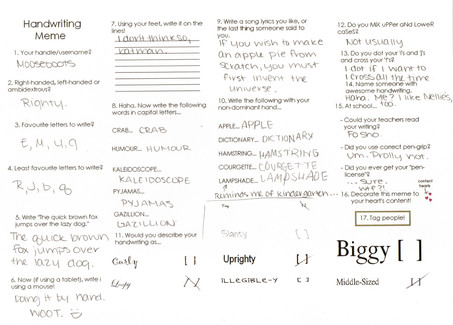 Handwriting
Meme
1. Your handle/username?
Mooseboots
2. Right-handed, left-handed or
ambidextrous?
Righty.
3. Favourite letters to write?
E, M, y, g
4. Least favourite letters to write?
R, J, b, q
5. Write "The quick brown
fox jumps over the lazy dog."
The quick brown
fox jumps over
the lazy dog.
6. Now (if using a tablet), write i
using a mouse!
Doing it by hand.
WOOT.
7. Using your feet, write it on the
lines!
I don't think so,
batman.
8. Haha. Now write the following
words in capital letters...
CRAB... CRAB
HUMOUR... HUMOUR
KALEIDOSCOPE...
KALEIDOSCOPE
PYJAMAS...
PYJAMAS
GAZILLION...
GAZILLION
11. Would you describe your
handwriting as...
Curly [ ]
Loopy
9. Write a song lyrics you like, or
the last thing someone said to
you.
If you wish to make
an apple pie from
scratch, you must
first invent the
universe.
10. Write the following with your
non-dominant hand...
APPLE... APPLE
DICTIONARY... DICTIONARY
HAMSTRING... HAMSTRING
COURGETTE... COURGETTE
LAMPSHADE... LAMPSHADE
Reminds me of kindergarten...
Slanty
Uprighty [ ]
ILLEGIBLE-Y [ ]
12. Do you MiX uPPer aNd LoweR
caSeS?
Not usually
13. Do you dot your 'i's and 'j's
and cross your 't's?
I dot if I want to
I cross all the time
14. Name someone with
awesome handwriting.
Haha. Me? I like Nellie's,
too.
15. At school...
- Could your teachers
read your writing?
Fo sho
- Did you use correct pen-grip?
Um. Prolly not.
- Did you ever get your "pen-
license"?
... sure.
wtf?!
content
hearts
16. Decorate this meme to
your heart's content!
17. Tag people!
Biggy [ ]
Middle-Sized